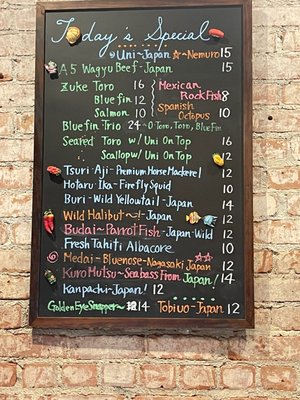 Today's Special
Uni~Japan ☆~Nemuro! 15
A5 Wagyu Beef-Japan 15
Zuke Toro 16 Mexican
Bluefin 12 Rock Fish 8
Salmon 10 Spanish Octopus 10
Bluefin Trio 24 ~O-Toro, Toro, BluFin
Seared Toro w/ Uni On Top 16
Scallop w/ Uni On Top 12
Tsuri-Aji-Japan Horse Mackerel 12
Hotaru-Ika-Firefly Squid 10
Buri-Wild Yellowtail-Japan 14
Wild Halibut ~!-Japan 12
Budai-Parrot Fish-Japan-Wild 12
Fresh Tahiti Albacore 10
Medai-Bluenose-Nagasaki Japan 12
Kuro Mutsu~Seabass From Japan! 14
Kanpachi-Japan! 12
Golden Eye Snapper~ 14 Tobiuo-Japan 12